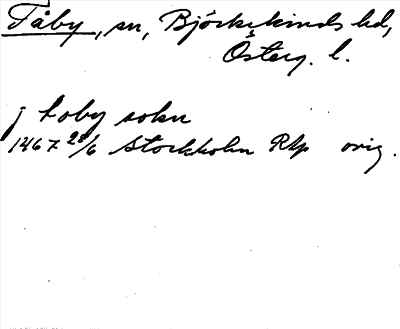 Tåby, sn, Björkekinds hd,
Österg. l.
j toby sokn
1467 28/6 Stockholm Rkp orig.